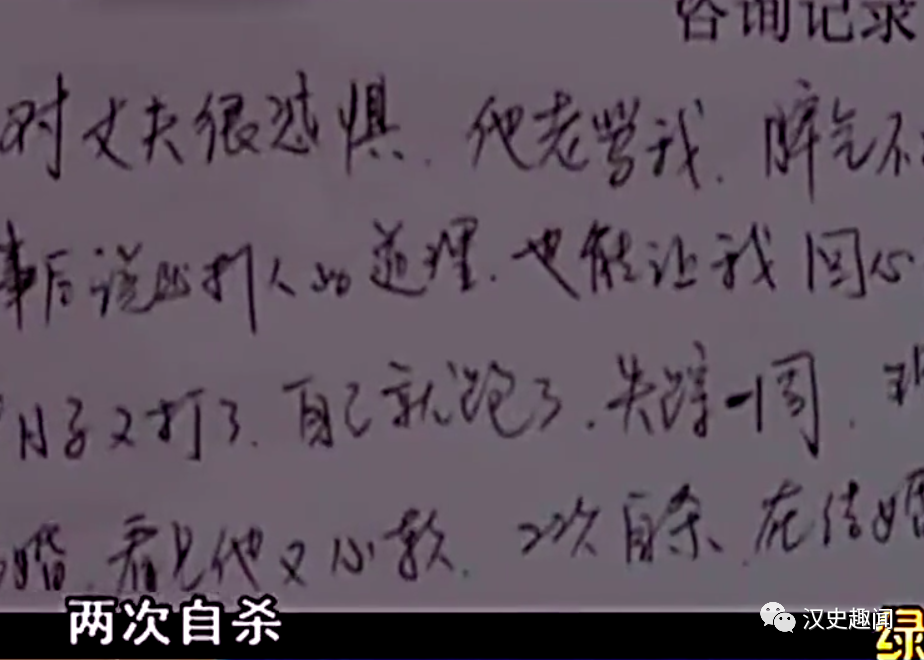 咨询记录
对丈夫很恐惧.他老骂我.脾气不
事后说出打人的道理.也能让我回心
月子又打了.自己就跑了.失踪一周.
婚.看见他又心软.2次自杀、在结婚
两次自杀
汉史趣闻
绿